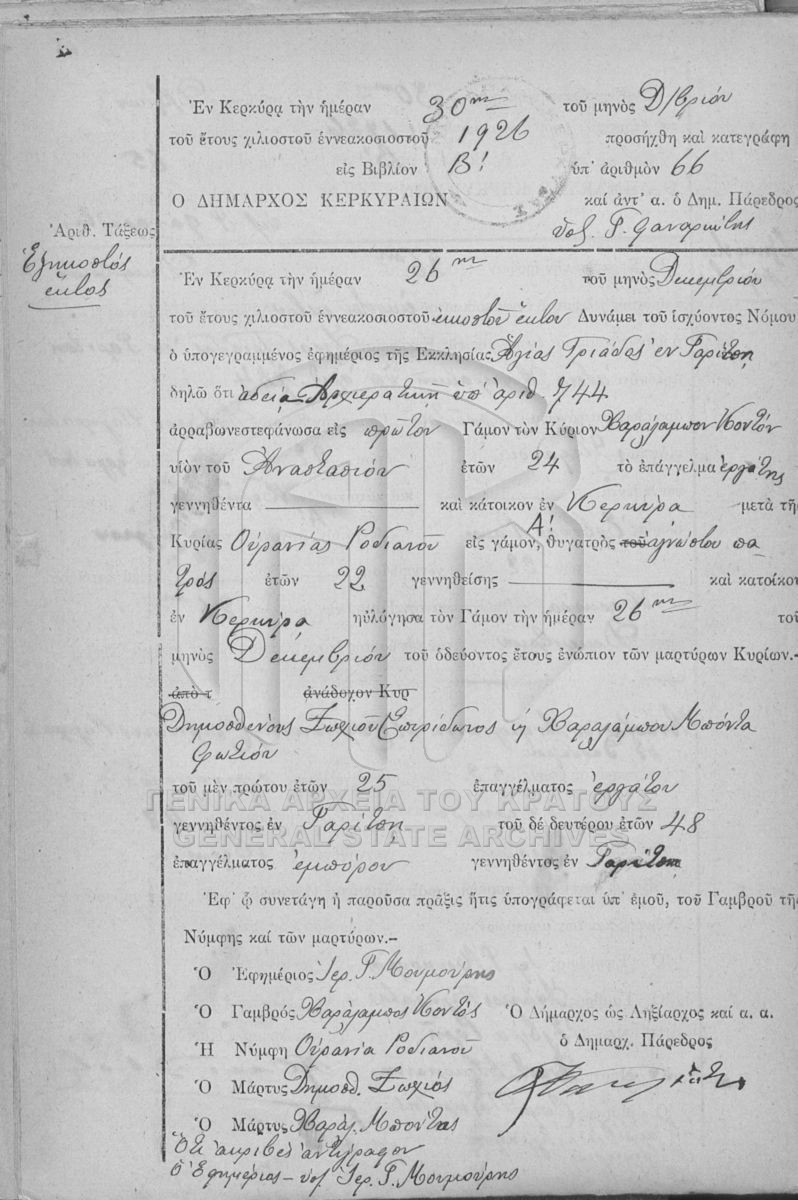 Ἐν Κερκύρᾳ τὴν ἡμέραν 30ην τοῦ μηνὸς Δ/βρίου
τοῦ ἔτους χιλιοστοῦ ἐννεακοσιοστοῦ 1926 προσήχθη καὶ κατεγράφη
εἰς Βιβλίον Β! ὑπ' ἀριθμὸν 66
Ο ΔΗΜΑΡΧΟΣ ΚΕΡΚΥΡΑΙΩΝ καί ἀντ' α. ὁ Δημ. Πάρεδρος
Ἀριθ. Τάξεως
Ἑξηκοστός
ἕκτος
Ἐν Κερκύρᾳ τὴν ἡμέραν 26ην τοῦ μηνὸς Δεκεμβρίου
τοῦ ἔτους χιλιοστοῦ ἐννεακοσιοστοῦ εἰκοστοῦ ἕκτου Δυνάμει τοῦ ἰσχύοντος Νόμου
ὁ ὑπογεγραμμένος ἐφημέριος τῆς Ἐκκλησίας Ἁγίας Τριάδος ἐν Γαρίτσῃ
δηλῶ ὅτι ἀδείᾳ Ἀρχιερατικῇ ὑπ' ἀριθ. 744
ἀρραβωνεστεφάνωσα εἰς πρῶτον Γάμον τὸν Κύριον Χαράλαμπον Κοντόν
υἱὸν τοῦ Ἀναστασίου ἐτῶν 24 τὸ ἐπάγγελμα ἐργάτης
γεννηθέντα καὶ κάτοικον ἐν Κερκύρᾳ μετὰ τῆ
Κυρίας Οὐρανίας Ροδιανοῦ εἰς γάμον Α!, θυγατρὸς τοῦ ἀγνώστου πα
τρός ἐτῶν 22 γεννηθείσης καὶ κατοίκου
ἐν Κερκύρᾳ ηὐλόγησα τὸν Γάμον τὴν ἡμέραν 26ην τοῦ
μηνὸς Δεκεμβρίου τοῦ ὁδεύοντος ἔτους ἐνώπιον τῶν μαρτύρων Κυρίων.-
ἀπὸ τ ἀνάδοχον Κυρ
Δημοσθένους Σωχιοῦ Σπυρίδωνος ἢ Χαραλάμπου Μπόντα
Φωτίου
τοῦ μὲν πρώτου ἐτῶν 25 ἐπαγγέλματος ἐργάτου
ΓΕΝΙΚΑ ΑΡΧΕΙΑ ΤΟΥ ΚΡΑΤΟΥΣ
γεννηθέντος ἐν Γαρίτσῃ τοῦ δὲ δευτέρου ἐτῶν 48
GENERAL STATE ARCHIVES
ἐπαγγέλματος ἐμπόρου γεννηθέντος ἐν Γαρίτσῃ
Ἐφ' ᾧ συνετάγη ἡ παροῦσα πρᾶξις ἥτις ὑπογράφεται ὑπ' ἐμοῦ, τοῦ Γαμβροῦ τῆς
Νύμφης καί τῶν μαρτύρων.-
Ὁ Ἐφημέριος Ἱερ. Γ. Μουμούρης
Ὁ Γαμβρός Χαράλαμπος Κοντός Ὁ Δήμαρχος ὡς Ληξίαρχος καί α. α.
Ἡ Νύμφη Οὐρανία Ροδιανοῦ ὁ Δημαρχ. Πάρεδρος
Ὁ Μάρτυς Δημοσθ. Σωχιός
Ὁ Μάρτυς Χαράλ. Μπόντας
Ὅτι ἀκριβές ἀντίγραφον
Ὁ Ἐφημέριος - Ἱερ. Γ. Μουμούρης